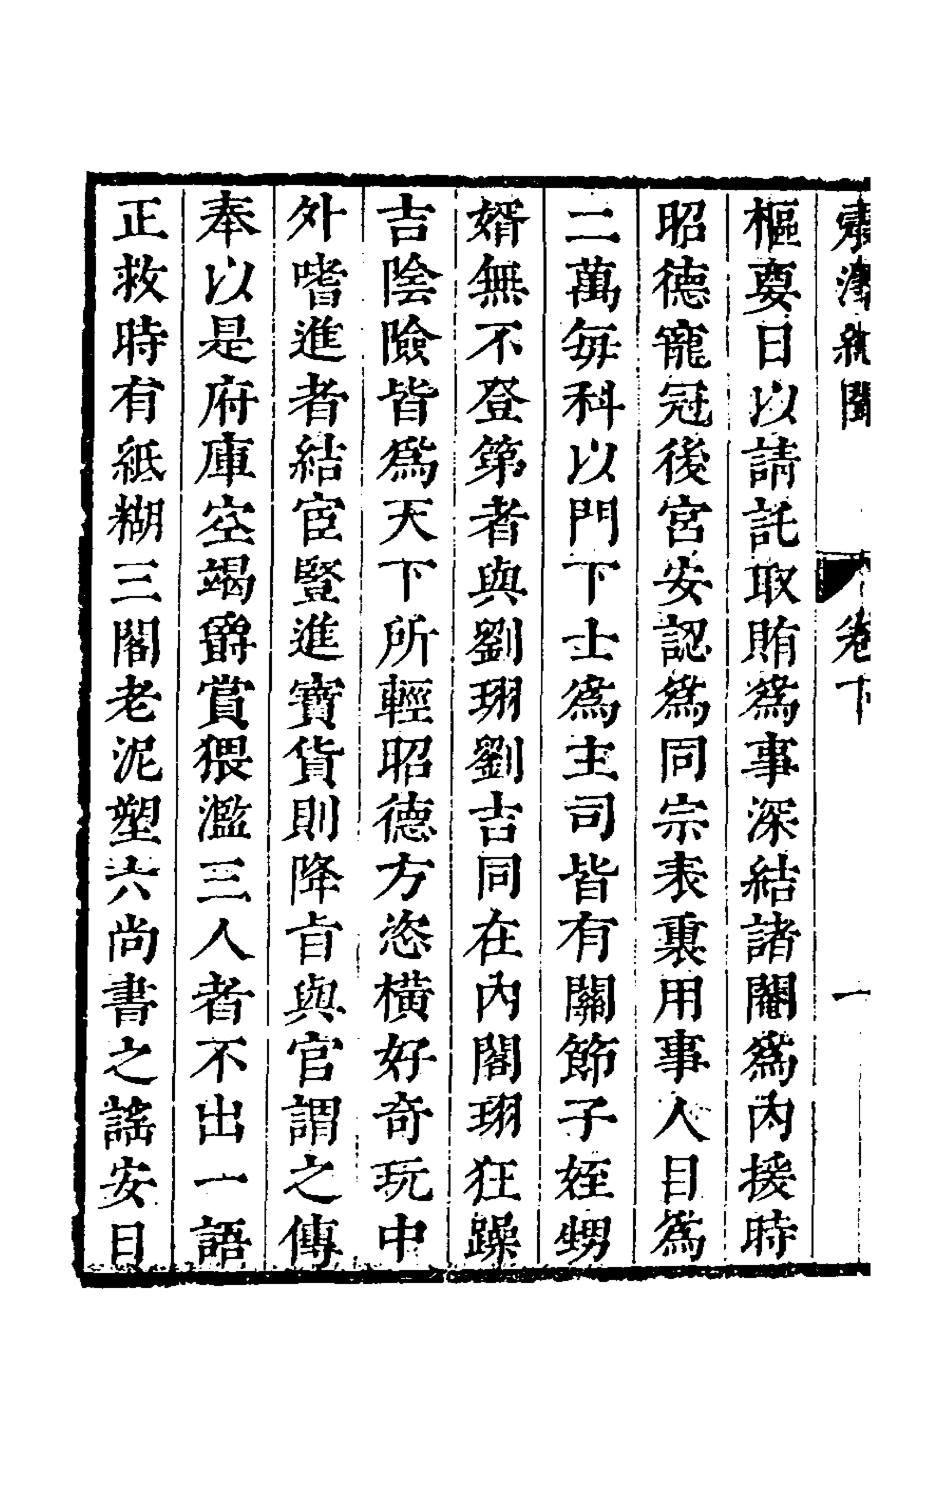 震澤紀聞 卷下 一
樞要日以請託取賄爲事深結諸閹爲內援時
昭德寵冠後宮安認爲同宗表裏用事人目爲
二萬每科以門下士爲主司皆有關節子姪甥
婿無不登第者與劉珝劉吉同在內閣珝狂躁
吉陰險皆爲天下所輕昭德方恣橫好奇玩中
外嗜進者結宦豎進寶貨則降旨與官謂之傳
奉以是府庫空竭爵賞猥濫三人者不出一語
正救時有紙糊三閣老泥塑六尚書之謠安日